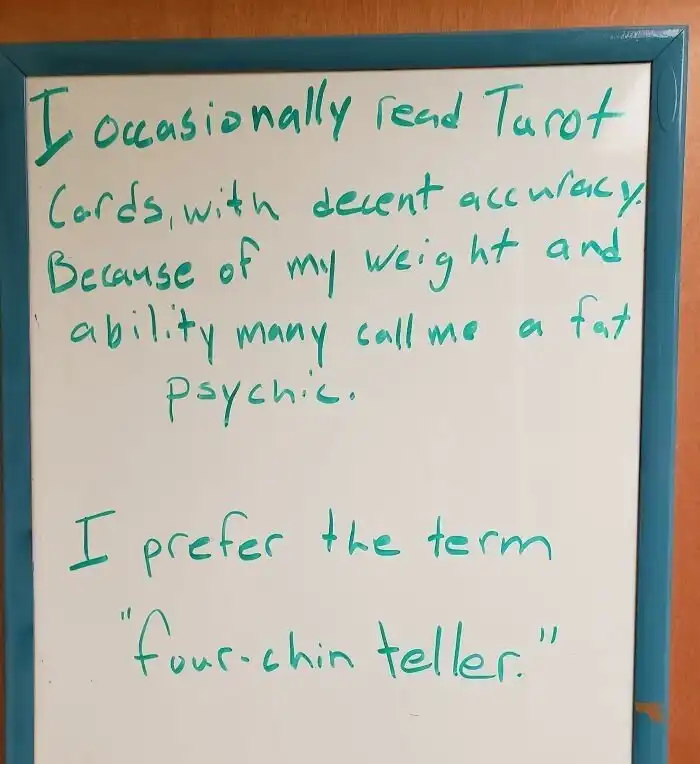 I occasionally read Tarot
Cards, with decent accuracy.
Because of my weight and
ability many call me a fat
psychic.
I prefer the term
"four-chin teller."